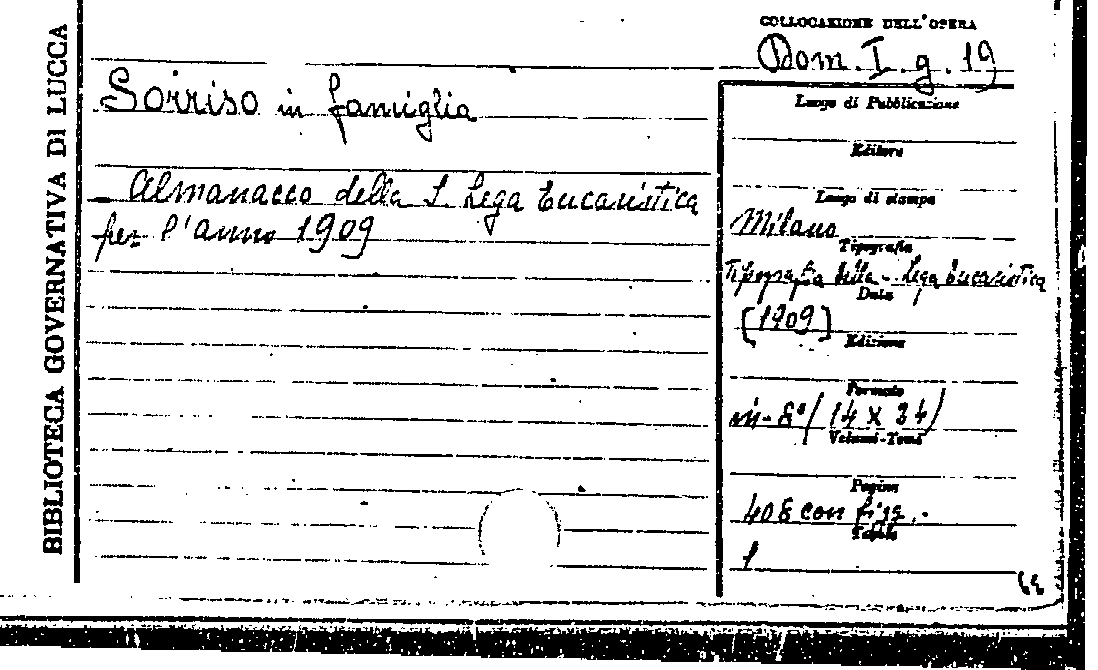 BIBLIOTECA GOVERNATIVA DI LUCCA
COLLOCAZIONE DELL'OPERA
Dom. I. g. 19
Sorriso in famiglia
Almanacco della S. Lega Eucaristica
per l'anno 1909
Luogo di Pubblicazione
Editore
Luogo di stampa
Milano
Tipografia
Tipografia della Lega Eucaristica
Data
[1909]
Edizione
Formato
in-8° (14 x 34)
Volumi-Tomi
Pagine
408 con fig.
Tabelle
1